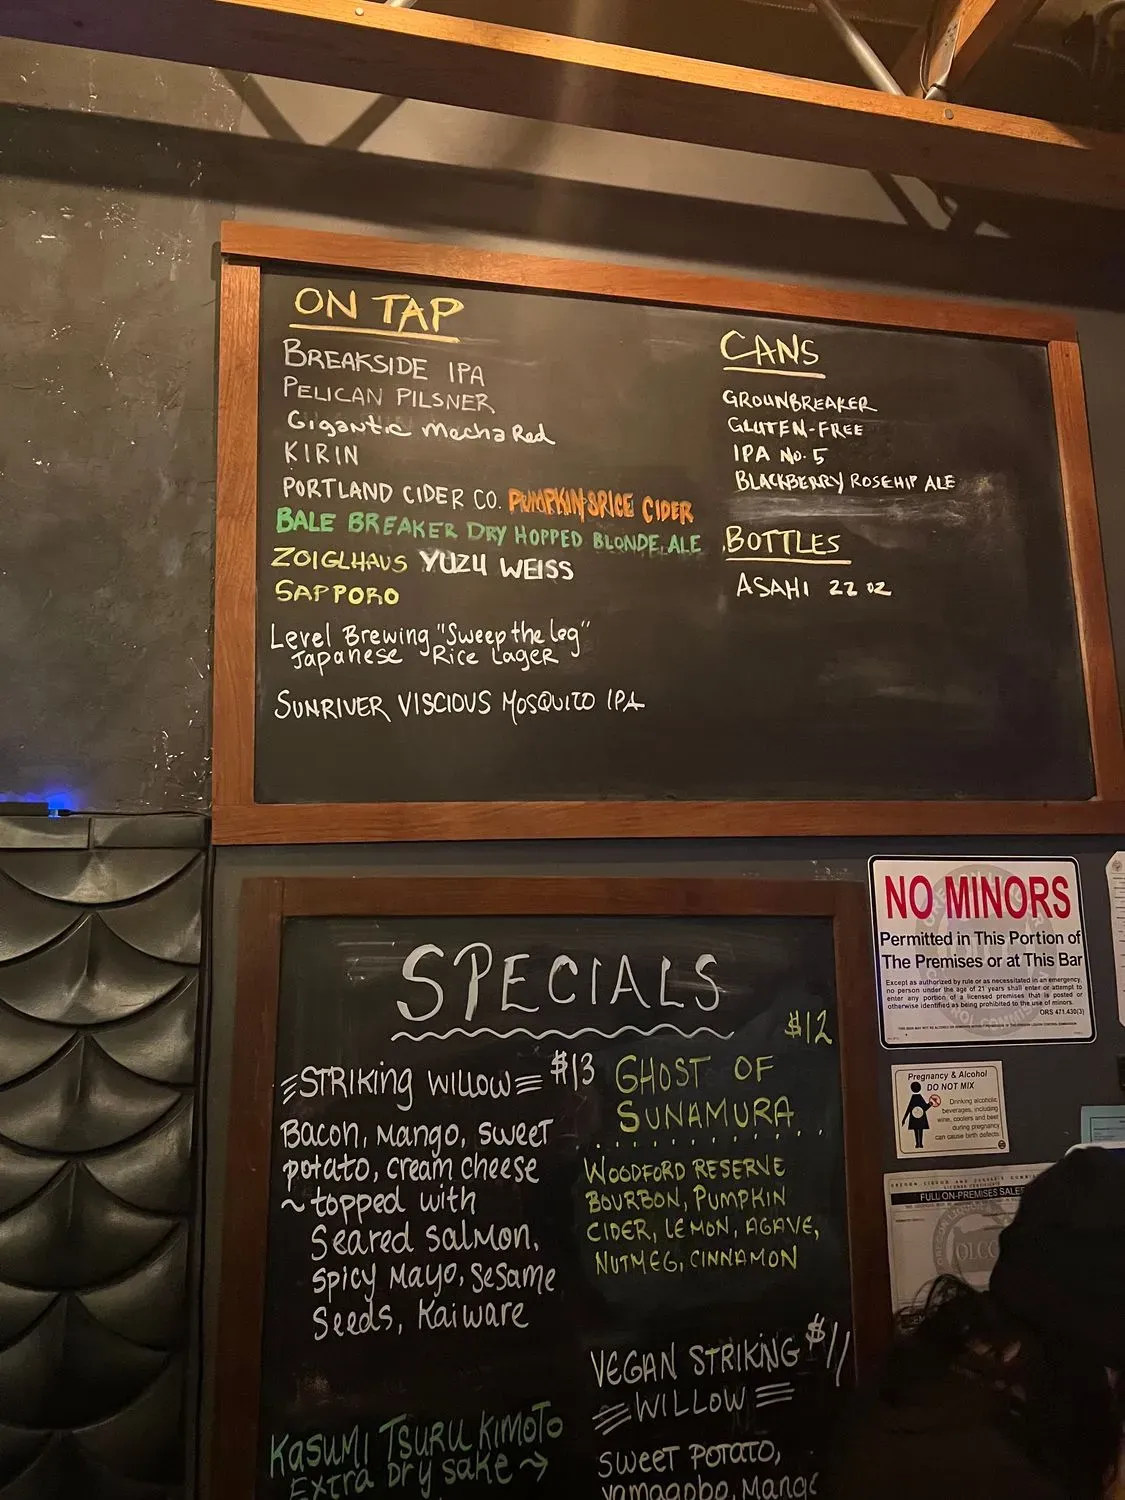 ON TAP
BREAKSIDE IPA
PELICAN PILSNER
Gigantic MechaRed
KIRIN
PORTLAND CIDER CO. PUMPKIN SPICE CIDER
BALE BREAKER DRY HOPPED BLONDE ALE
ZOIGLHAUS YUZU WEISS
SAPPORO
Level Brewing "Sweep the leg"
Japanese Rice Lager
SUNRIVER VISCIOUS MOSQUITO IPA
CANS
GROUNBREAKER
GLUTEN-FREE
IPA No. 5
BLACKBERRY ROSEHIP ALE
BOTTLES
ASAHI 22 oz
SPECIALS
STRIKING WILLOW $13
Bacon, Mango, sweet
potato, cream cheese
~ topped with
Seared Salmon,
Spicy Mayo, Sesame
Seeds, Kaiware
KASUMI TSURU KIMOTO
Extra Dry sake →
$12
GHOST OF
SUNAMURA
WOODFORD RESERVE
BOURBON, PUMPKIN
CIDER, LEMON, AGAVE,
NUTMEG, CINNAMON
VEGAN STRIKING $11
WILLOW
SWEET POTATO,
yamagobo, Mango
NO MINORS
Permitted in This Portion of
The Premises or at This Bar
Except as authorized by rule or as necessitated in an emergency,
no person under the age of 21 years shall enter or attempt to
enter any portion of a licensed premises that is posted or
otherwise identified as being prohibited to the use of minors.
ORS 471.430(3)
Pregnancy & Alcohol
DO NOT MIX
Drinking alcoholic
beverages, including
wine, coolers and beer
during pregnancy
can cause birth defects.
FULL ON-PREMISES SALES
OLCC